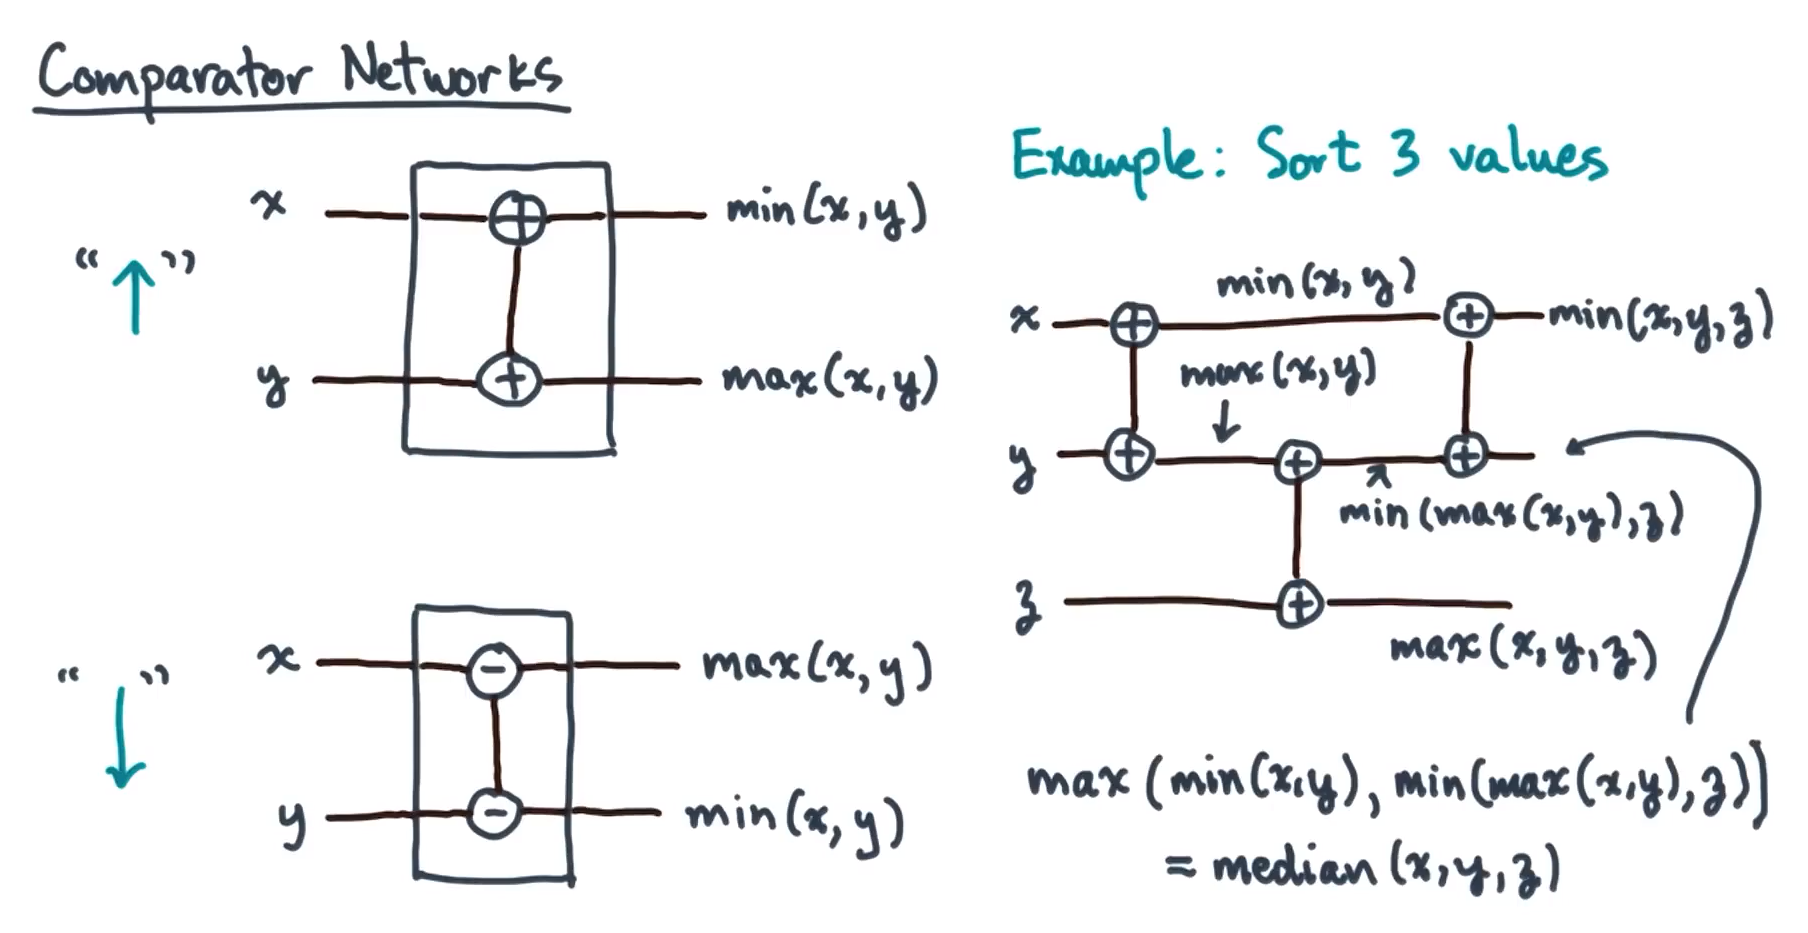 Comparator Networks
x
min(x,y)
“↑”
y
max(x,y)
x
max(x,y)
“↓”
y
min(x,y)
Example: Sort 3 values
min(x,y)
x
min(x,y,z)
max(x,y)
y
min(max(x,y),z)
z
max(x,y,z)
max(min(x,y), min(max(x,y),z))
= median(x,y,z)